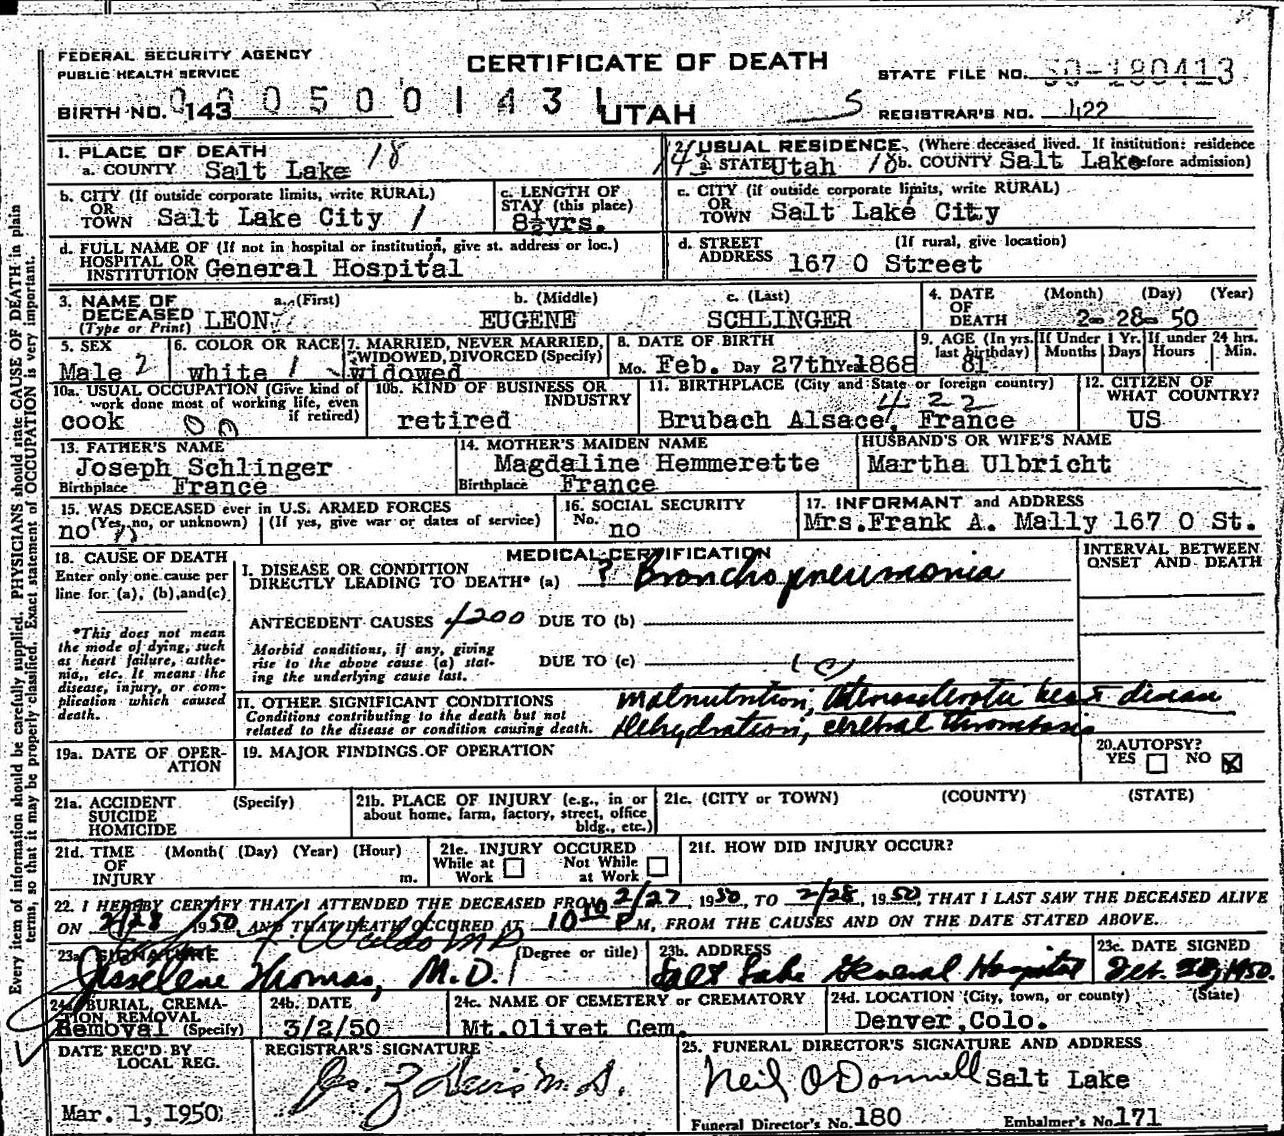 FEDERAL SECURITY AGENCY
PUBLIC HEALTH SERVICE
CERTIFICATE OF DEATH
STATE FILE NO. 50-180413
BIRTH NO. 143 000500143
UTAH
5 REGISTRAR'S NO. 422
1. PLACE OF DEATH 18
a. COUNTY Salt Lake
2. USUAL RESIDENCE (Where deceased lived. If institution: residence before admission)
43 a. STATE Utah 18 b. COUNTY Salt Lake
b. CITY (If outside corporate limits, write RURAL)
OR
TOWN Salt Lake City 1
c. LENGTH OF
STAY (this place)
8½yrs.
c. CITY (if outside corporate limits, write RURAL)
OR
TOWN Salt Lake City
d. FULL NAME OF (If not in hospital or institution, give st. address or loc.)
HOSPITAL OR
INSTITUTION General Hospital
d. STREET (If rural, give location)
ADDRESS 167 O Street
3. NAME OF DECEASED (Type or Print)
a. (First) b. (Middle) c. (Last)
LEON EUGENE SCHLINGER
4. DATE OF DEATH (Month) (Day) (Year)
2- 28- 50
5. SEX
Male 2
6. COLOR OR RACE
white 1
7. MARRIED, NEVER MARRIED,
WIDOWED, DIVORCED (Specify)
widowed
8. DATE OF BIRTH
Mo. Feb. Day 27th Year 1868
9. AGE (In yrs. last birthday) If Under 1 Yr. If under 24 hrs.
Months Days Hours Min.
81
10a. USUAL OCCUPATION (Give kind of
work done most of working life, even
if retired)
cook
10b. KIND OF BUSINESS OR
INDUSTRY
retired
11. BIRTHPLACE (City and State or foreign country)
422
Brubach Alsace, France
12. CITIZEN OF
WHAT COUNTRY?
US
13. FATHER'S NAME
Joseph Schlinger
Birthplace France
14. MOTHER'S MAIDEN NAME
Magdaline Hemmerette
Birthplace France
HUSBAND'S OR WIFE'S NAME
Martha Ulbricht
15. WAS DECEASED ever in U.S. ARMED FORCES
no (Yes, no, or unknown) (If yes, give war or dates of service)
16. SOCIAL SECURITY
No. no
17. INFORMANT and ADDRESS
Mrs.Frank A. Mally 167 O St.
18. CAUSE OF DEATH
Enter only one cause per
line for (a), (b), and (c)
*This does not mean
the mode of dying, such
as heart failure, asthe-
nia, etc. It means the
disease, injury, or com-
plication which caused
death.
MEDICAL CERTIFICATION
INTERVAL BETWEEN
ONSET AND DEATH
I. DISEASE OR CONDITION
DIRECTLY LEADING TO DEATH* (a) ? Bronchopneumonia
ANTECEDENT CAUSES 4200 DUE TO (b)
Morbid conditions, if any, giving
rise to the above cause (a) stat-
ing the underlying cause last.
DUE TO (c)
II. OTHER SIGNIFICANT CONDITIONS
Conditions contributing to the death but not
related to the disease or condition causing death.
malnutrition, atherosclerotic heart disease
dehydration, cerebral thrombosis
19a. DATE OF OPER-
ATION
19. MAJOR FINDINGS OF OPERATION
20. AUTOPSY?
YES NO X
21a. ACCIDENT (Specify)
SUICIDE
HOMICIDE
21b. PLACE OF INJURY (e.g., in or
about home, farm, factory, street, office
bldg., etc.)
21c. (CITY or TOWN) (COUNTY) (STATE)
21d. TIME (Month( (Day) (Year) (Hour)
OF
INJURY m.
21e. INJURY OCCURED
While at Work Not While at Work
21f. HOW DID INJURY OCCUR?
22. I HEREBY CERTIFY THAT I ATTENDED THE DECEASED FROM 2/27, 1950, TO 2/28, 1950, THAT I LAST SAW THE DECEASED ALIVE
ON 2/28 1950 AND THAT DEATH OCCURED AT 10 10 P M, FROM THE CAUSES AND ON THE DATE STATED ABOVE.
Waldo M.D.
23a. SIGNATURE (Degree or title)
Thomas, M.D.
23b. ADDRESS
Salt Lake General Hospital
23c. DATE SIGNED
Feb. 28, 1950.
24a. BURIAL, CREMA-
TION, REMOVAL
Removal (Specify)
24b. DATE
3/2/50
24c. NAME OF CEMETERY or CREMATORY
Mt.Olivet Cem.
24d. LOCATION (City, town, or county) (State)
Denver,Colo.
DATE REC'D BY
LOCAL REG.
Mar. 1, 1950
REGISTRAR'S SIGNATURE
25. FUNERAL DIRECTOR'S SIGNATURE AND ADDRESS
Neil O'Donnell Salt Lake
Funeral Director's No. 180 Embalmer's No. 171
Every item of information should be carefully supplied. PHYSICIANS should state CAUSE OF DEATH in plain
terms, so that it may be properly classified. Exact statement of OCCUPATION is very important.